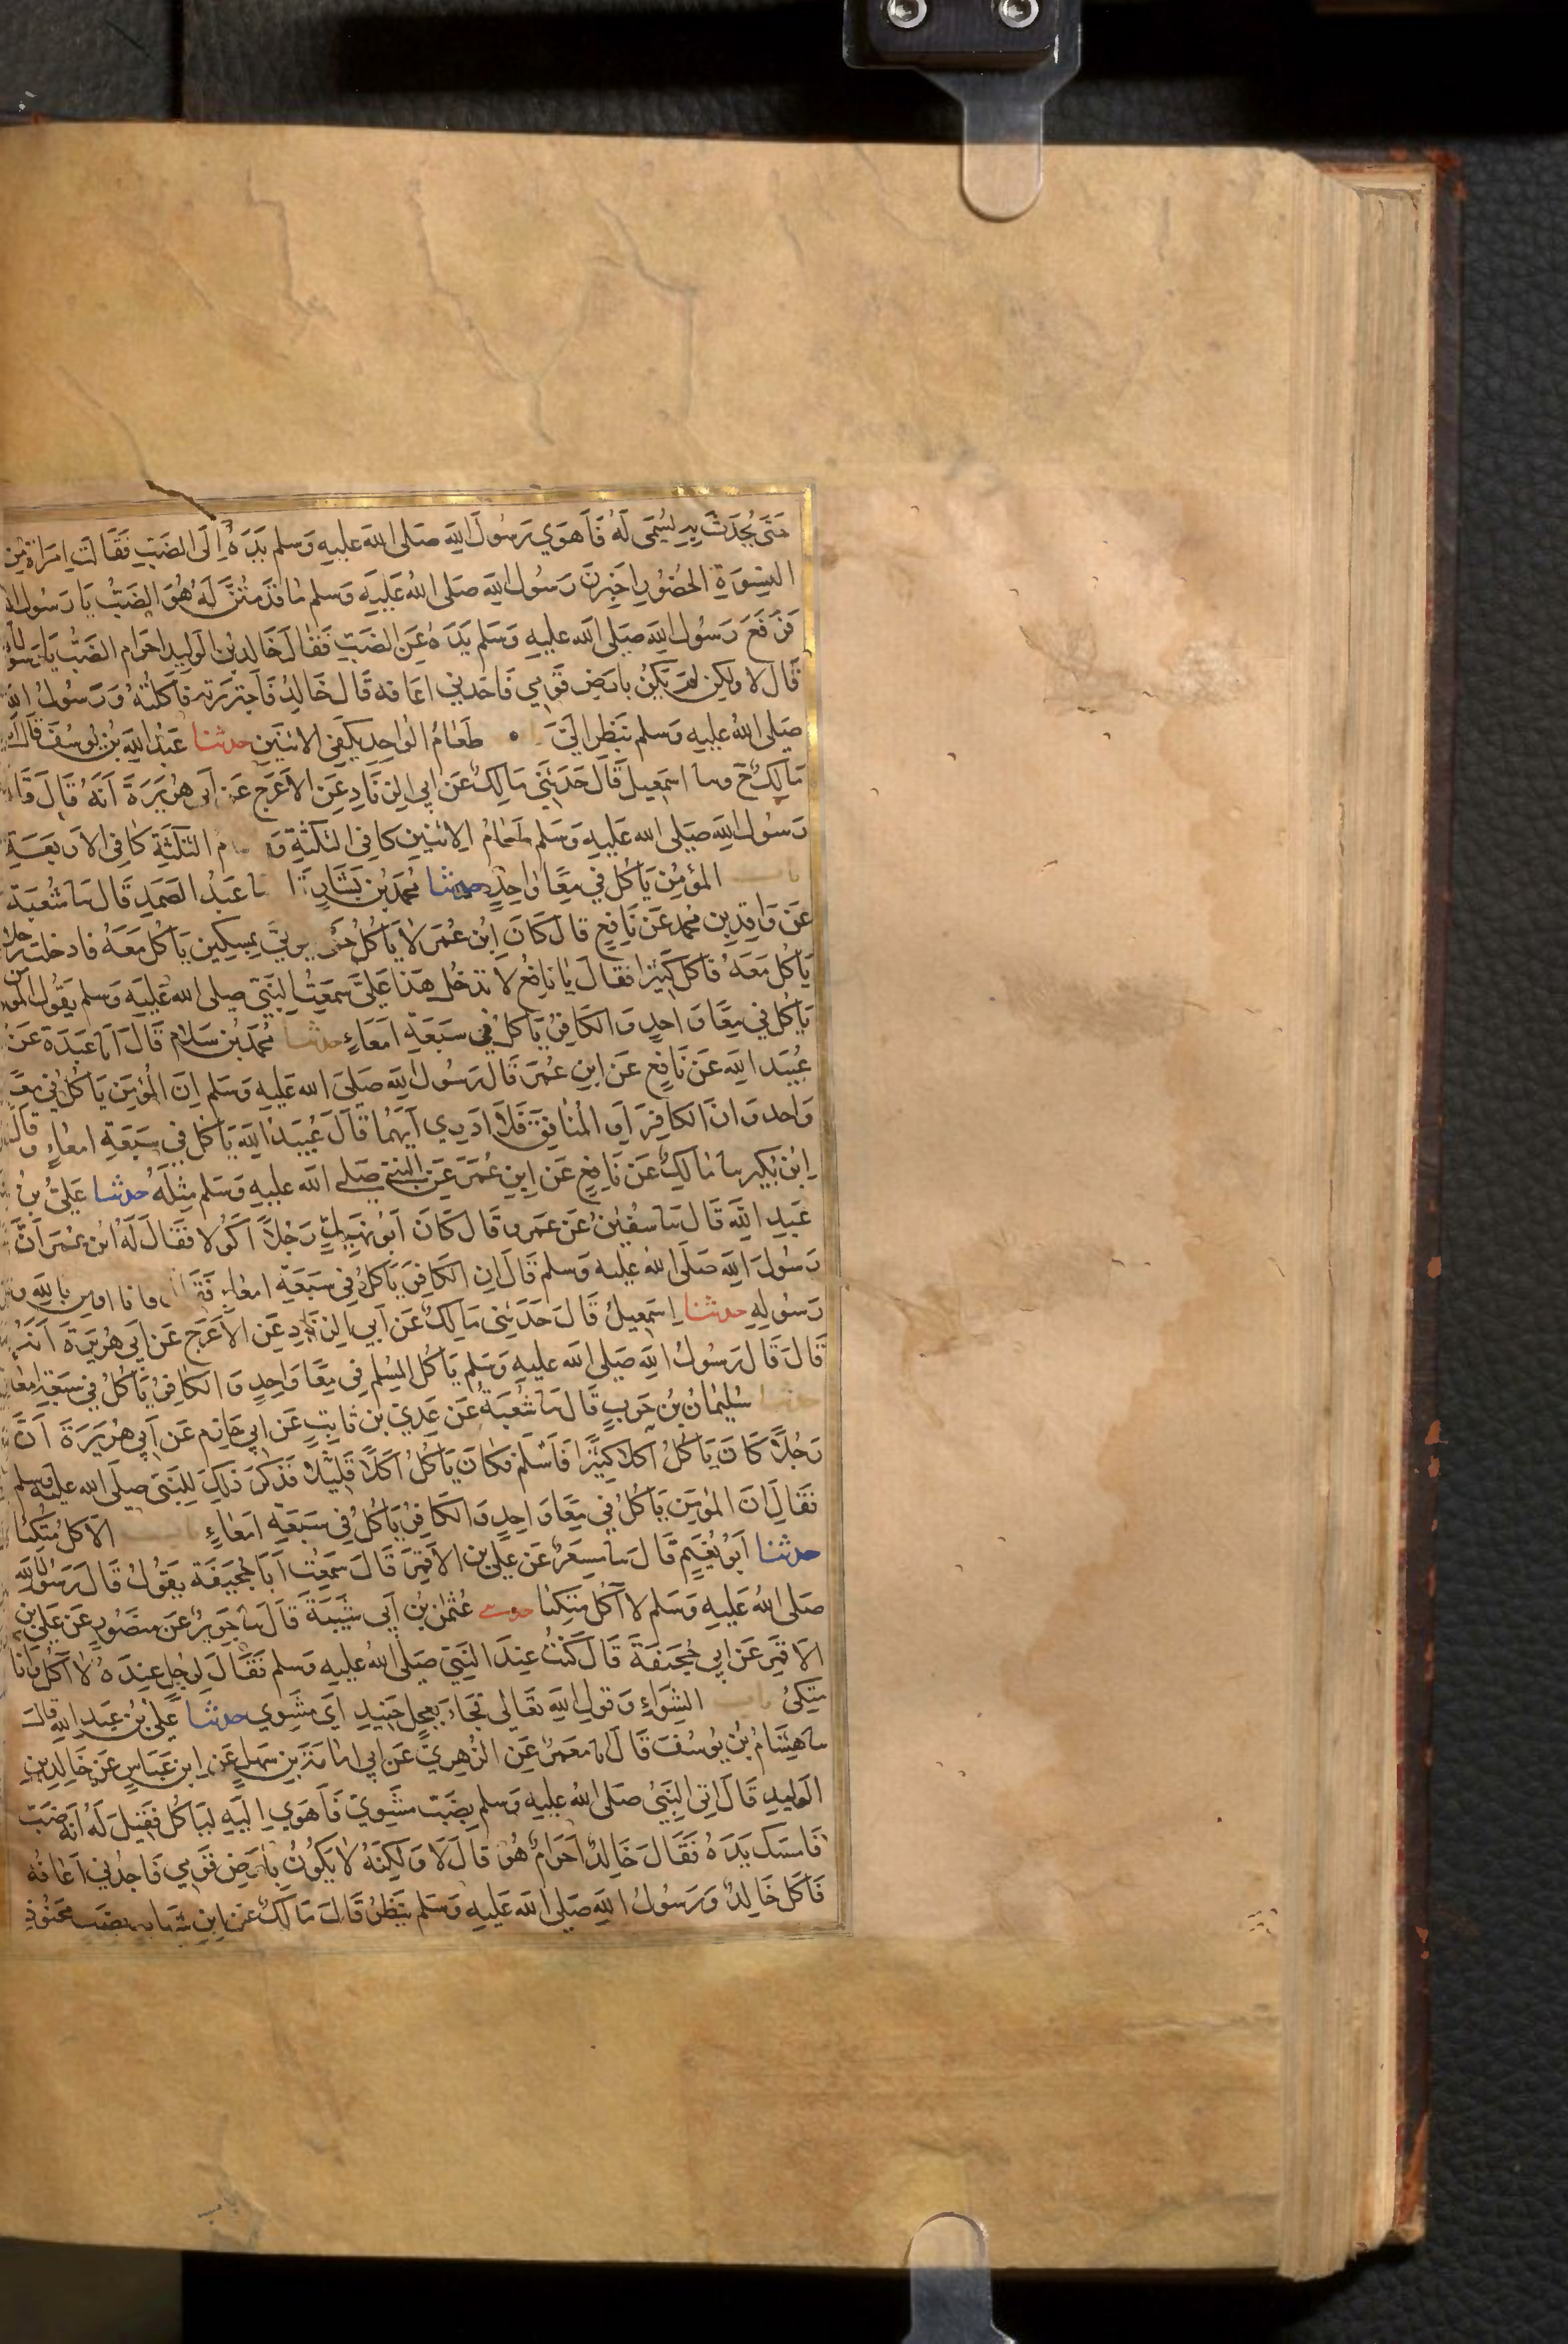 حَتّى يُحَدَّثَ بِهِ يُسَمّى لَهُ فَاَهوَي رَسُولُ اللهِ صَلى الله عليه وَسلم يَدَهُ اِلَى الضَبِّ فَقَالَتِ امرَاةٌ مِنَ
النِسوَةِ الحُضُورِ اَخبِرنَ رَسُولَ اللهِ صَلى اللهُ عَلَيهِ وَسلم مَا قَدَّمتُنَّ لَهُ هُوَ الضَبُّ يَا رَسُولَ الله
فَرَفَعَ رَسُولُ اللهِ صَلى الله عليهِ وَسَلم يَدَهُ عَنِ الضَبِّ فَقَالَ خَالِدُ بنُ الوَلِيدِ احَرَام الضَبُّ يَا رَسُولَ الله
قَالَ لا ولكِن لَم يَكُن بِارضِ قَومِي فَاجدني اعَافه قَالَ خَالِدٌ فَاجتَرَرتهِ فَاَكَلتهُ وَرَسُولُ الله
صَلى اللهُ عليهِ وسلم يَنظر اليَّ • طَعَامُ الوَاحِدِ يَكفِي الاثنَينِ حدثنا عَبدُ اللهِ بنُ يُوسُفَ قَالَ انا
مَالِكٌ ح وسا اسمعِيلُ قَالَ حَدَّثَنِي مَالِكٌ عَن اَبِي الزِنَادِ عَنِ الاَعرَجِ عَن اَبي هُرَيرَةَ اَنَّهُ قَالَ قَالَ
رَسُولُ اللهِ صَلى الله عَلَيهِ وَسَلم طَعَامُ الاثنَينِ كَافِي الثَلثَةِ وَ ام الثَلثَةِ كَافِى الاَربَعَةِ
باب المؤمِنُ يَاكُلُ فِي مِعًا وَاحِدٍ حدثنا مُحمدُ بنُ بَشَّارٍ سا عَبدُ الصَمَدِ قَالَ سا شُعبَة
عَن وَاقِدِ بنِ مُحمد عَن نَافِعٍ قَالَ كَانَ ابنُ عُمَرَ لا يَاكُلُ حَتى يوتَى بِمسكِينٍ يَاكُلُ مَعَهُ فَادخَلتُ رَجلًا
يَاكُلُ مَعَهُ فَاَكَلَ كَثِيرًا فَقالَ يَا نَافِعُ لا تدخِل هَذَا عَلَيَّ سَمِعتُ النَّبِيَّ صلى الله عَلَيهِ وَسلم يَقُولُ المومن
يَاكُلُ فِي مِعًا وَاحِدٍ وَالكَافِرُ يَاكُلُ فِي سَبعَةِ اَمعَاءٍ حدثنا مُحمدُ بنُ سَلَامٍ قَالَ اَنا عَبدَة عَن
عُبَيدِ اللهِ عَن نَافِعٍ عَن ابنِ عُمَرَ قَالَ رَسُولُ اللهِ صَلى الله عَلَيهِ وَسَلم اِنَّ المُؤمِنَ يَاكُلُ فِي مِعًا
وَاحِد وَانَّ الكَافِرَ اَوِ المُنَافِقَ فَلَا ادرِي اَيّهُمَا قَالَ عُبَيدُ اللهِ يَاكُلُ فِي سَبعَةِ امعَاءٍ وَقَالَ
ابنُ بُكَير سا مَالِكٌ عَن نَافِعٍ عَن ابنِ عُمَرَ عَنِ النَبِيِّ صَلى الله عليهِ وَسلم مِثلَهُ حدثنا عَلِيُّ بنُ
عَبدِ اللهِ قَالَ سا سُفيٰنُ عَن عَمرٍو قَالَ كَانَ اَبُو نَهِيكٍ رَجُلًا اَكُولًا فَقَالَ لَهُ ابن عُمَرَ اَنَّ
رَسُولَ اللهِ صَلى الله عليه وَسلم قَالَ اِنَّ الكَافِرَ يَاكُلُ فِي سَبعَةِ امعَاءٍ فَقَالَ فانا اومِن بِاللهِ وَ
رَسُولِهِ حدثنا اِسمعِيلُ قَالَ حَدَّثَنِي مَالِكٌ عَن اَبِي الزِنَادِ عَنِ الاَعرَجِ عَن اَبِي هُرَيرَةَ اَنهُ
قَالَ قَالَ رَسُولُ اللهِ صَلى الله عليه وَسَلم يَاكُلُ المُسلِم فِي مِعًا وَاحِدٍ وَالكَافِرُ يَاكُلُ فِي سَبعَةِ امعَاء
حدثنا سُلَيمَانُ بنُ حَربٍ قَالَ سا شُعبَةُ عَن عَدِيّ بنِ ثَابِتٍ عَن اَبِي حَازِمٍ عَن اَبِي هُرَيرَةَ اَنَّ
رَجُلًا كَانَ يَاكُلُ اَكلًا كَثِيرًا فَاَسلَمَ فَكَانَ يَاكُلُ اَكلًا قَلِيلًا فَذُكِرَ ذلِكَ لِلنَّبِيِّ صَلى الله عليه وسلم
فَقَالَ اِنَّ المُؤمِنَ يَاكُلُ فِي مِعًا وَاحِدٍ وَالكَافِرُ يَاكُلُ فِي سَبعَةِ اَمعَاءٍ باب الاَكل مُتَّكِئًا
حدثنا اَبُو نُعَيمٍ قَالَ سا مِسعَرٌ عَن عَلِيّ بنِ الاَقمَرِ قَالَ سَمِعتُ اَبَا جُحَيفَةَ يَقُولُ قَالَ رَسُولُ الله
صَلى اللهُ عَلَيهِ وَسَلم لا آكُلُ مُتَّكِئًا حدثني عُثمٰنُ بنُ اَبِي شَيبَةَ قَالَ سا جَرِيرٌ عَن مَنصُورٍ عَن عَلِيّ بنِ
الاَقمَرِ عَن اَبِي جُحَيفَةَ قَالَ كُنتُ عِندَ النَّبِيِّ صَلى اللهُ عليه وسلم فَقَالَ لِرَجُلٍ عِندَهُ لا آكُلُ وَانَا
مُتَّكِئٌ باب الشِوَاءِ وَقولِ اللهِ تَعَالى فَجَاءَ بِعِجلٍ حَنِيذٍ اَي مَشوِي حدثنا عَلِيُّ بنُ عَبدِ اللهِ قَالَ
سا هِشَامُ بنُ يُوسُفَ قَالَ انا مَعمَرٌ عَنِ الزُهرِيِّ عَن اَبِي امَامَةَ بنِ سَهلٍ عَنِ ابنِ عَبَّاسٍ عَن خَالِدِ بنِ
الوَلِيدِ قَالَ اُتِيَ النَّبِيُّ صَلى اللهُ عليهِ وسلم بِضَبٍّ مَشوِيّ فَاَهوَي اِلَيهِ لِيَاكُلَ فَقِيلَ لَهُ اَنَّهُ ضَبّ
فَامسَكَ يَدَهُ فَقَالَ خَالِدٌ اَحَرَامٌ هُوَ قَالَ لَا وَلكِنَّهُ لا يَكُونُ بِاَرضِ قَومِي فَاَجِدُنِي اَعَافُه
فَاَكَلَ خَالِدٌ وَرَسُولُ اللهِ صَلى الله عَلَيهِ وَسَلم يَنظُرُ قَالَ مَالِكٌ عَنِ ابنِ شهَاب بضَبّ مَحنُوذ
باب